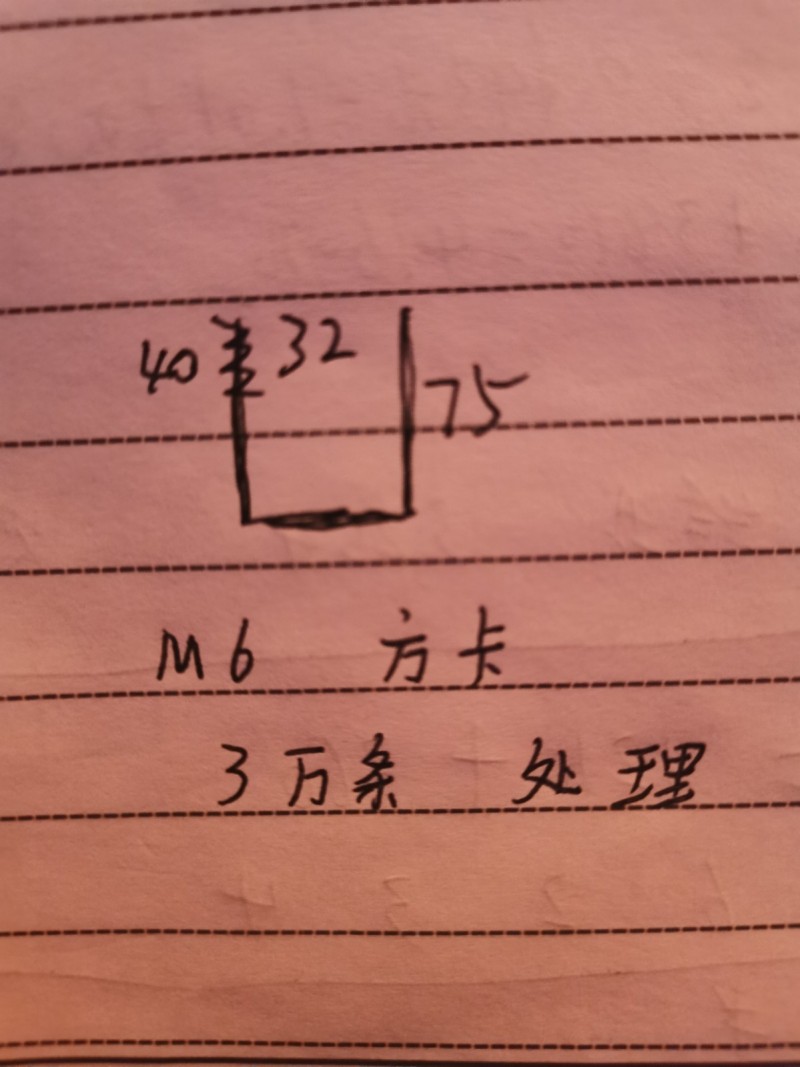 40 32 75
M6 方卡
3万条 处理